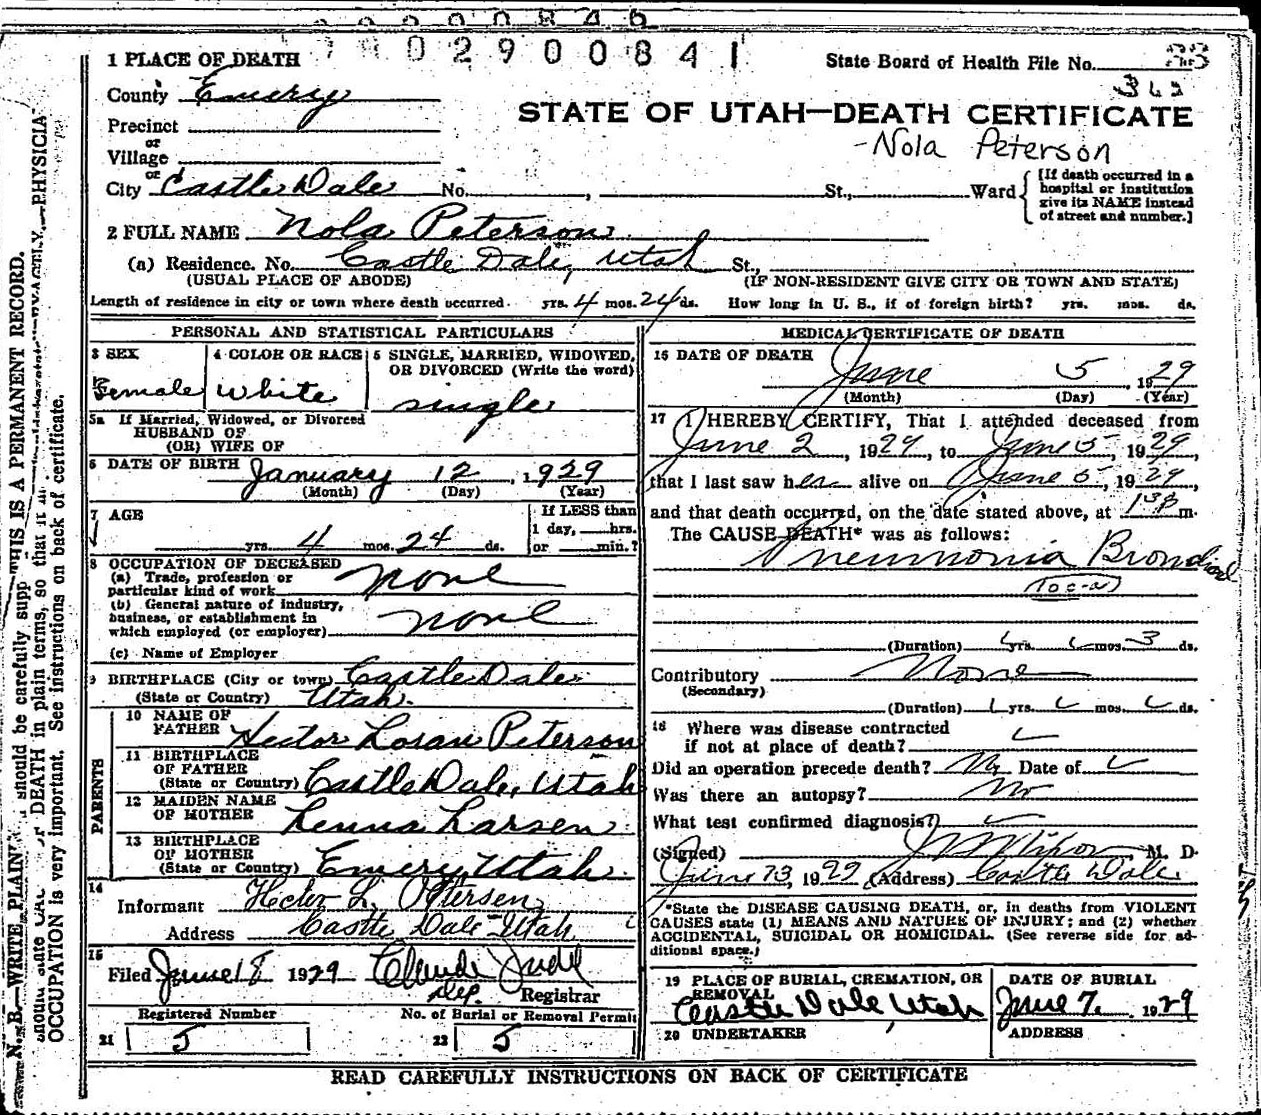 2900841
1 PLACE OF DEATH
State Board of Health File No.
County Emery
STATE OF UTAH—DEATH CERTIFICATE
Precinct
or
- Nola Peterson
Village
or
City Castle Dale No. , St., Ward
[If death occurred in a
hospital or institution
give its NAME instead
of street and number.]
2 FULL NAME Nola Peterson
(a) Residence. No. Castle Dale, Utah St.,
(USUAL PLACE OF ABODE) (IF NON-RESIDENT GIVE CITY OR TOWN AND STATE)
Length of residence in city or town where death occurred. yrs. 4 mos. 24 ds. How long in U. S., if of foreign birth? yrs. mos. ds.
PERSONAL AND STATISTICAL PARTICULARS
3 SEX
Female
4 COLOR OR RACE
White
5 SINGLE, MARRIED, WIDOWED,
OR DIVORCED (Write the word)
single
5a If Married, Widowed, or Divorced
HUSBAND OF
(OR) WIFE OF
6 DATE OF BIRTH January 12, 1929
(Month) (Day) (Year)
7 AGE
yrs. 4 mos. 24 ds.
If LESS than
1 day, hrs.
or min.?
8 OCCUPATION OF DECEASED
(a) Trade, profession or
particular kind of work none
(b) General nature of industry,
business, or establishment in
which employed (or employer) none
(c) Name of Employer
9 BIRTHPLACE (City or town) Castle Dale
(State or Country) Utah.
PARENTS
10 NAME OF
FATHER Hector Loran Peterson
11 BIRTHPLACE
OF FATHER
(State or Country) Castle Dale, Utah
12 MAIDEN NAME
OF MOTHER Lenna Larsen
13 BIRTHPLACE
OF MOTHER
(State or Country) Emery, Utah.
14
Informant Hector L. Petersen
Address Castle Dale Utah
15
Filed June 18 1929 Claude Judd
Dep. Registrar
Registered Number No. of Burial or Removal Permit
21 5 22 5
MEDICAL CERTIFICATE OF DEATH
16 DATE OF DEATH
June 5, 1929
(Month) (Day) (Year)
17 I HEREBY CERTIFY, That I attended deceased from
June 2, 1929, to June 5, 1929,
that I last saw her alive on June 5, 1929,
and that death occurred, on the date stated above, at 1 30 p m.
The CAUSE DEATH* was as follows:
Pneumonia Bronchial
(Duration) yrs. mos. 3 ds.
Contributory None
(Secondary)
(Duration) yrs. mos. ds.
18 Where was disease contracted
if not at place of death?
Did an operation precede death? No Date of
Was there an autopsy? No
What test confirmed diagnosis?
(Signed) M. D.
June 13, 1929 (Address) Castle Dale
*State the DISEASE CAUSING DEATH, or, in deaths from VIOLENT
CAUSES state (1) MEANS AND NATURE OF INJURY; and (2) whether
ACCIDENTAL, SUICIDAL OR HOMICIDAL. (See reverse side for ad-
ditional space.)
19 PLACE OF BURIAL, CREMATION, OR
REMOVAL
Castle Dale, Utah
DATE OF BURIAL
June 7. 1929
20 UNDERTAKER
ADDRESS
READ CAREFULLY INSTRUCTIONS ON BACK OF CERTIFICATE
N. B.—WRITE PLAINLY THIS IS A PERMANENT RECORD.
should be carefully supp PHYSICIA
DEATH in plain terms, so that it
OCCUPATION is very important. See instructions on back of certificate.